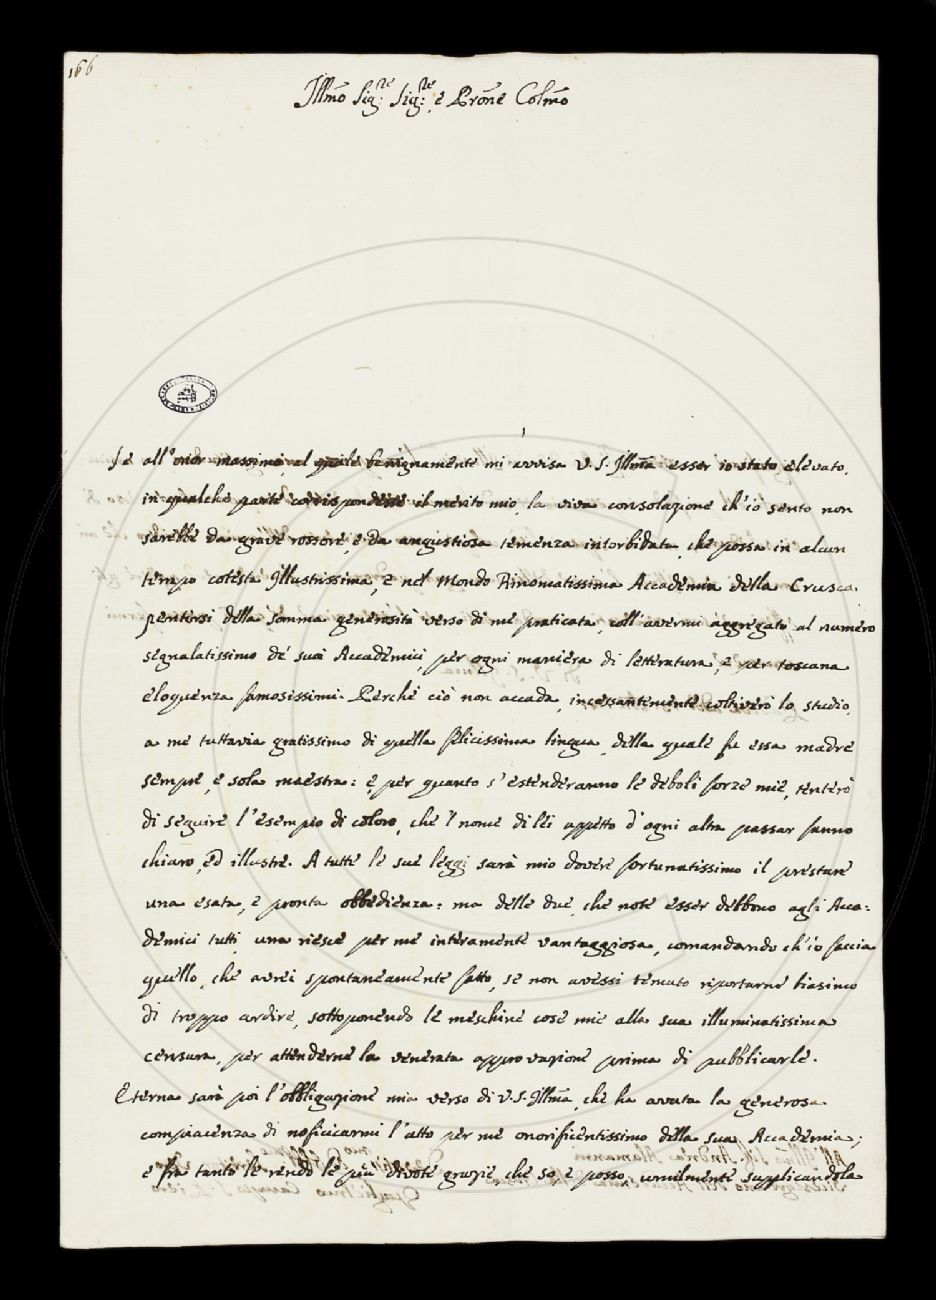 166
Jllmõ Sig:re Sig:re, e Prõne Colmõ
Se all'onor massimo, al quale benignamente mi avvisa V.S. Jllmã esser io stato elevato,
in qualche parte corrispondesse il merito mio la viva consolazione ch'io sento non
sarebbe da grave rossore, e da angustiosa temenza intorbidata, che possa in alcun
tempo cotesta Illustrissima, e nel Mondo Rinomatissima Accademia della Crusca
pentirsi della somma generosità verso di me praticata, coll'avermi aggregato al numero
segnalatissimo de' suoi Accademici, per ogni maniera di letteratura, e per toscana
eloquenza famosissimi. Perchè ciò non accada, incessantemente coltiverò lo studio,
a me tuttavia gratissimo di quella felicissima lingua, della quale fu essa madre
sempre, e sola maestra: e, per quanto s'estenderanno le deboli forze mie, tenterò
di seguire l'esempio di coloro, che 'l nome di lei appetto d'ogni altra passar fanno
chiaro, ed illustre. A tutte le sue leggi sarà mio dovere fortunatissimo il prestare
una esata, e pronta obbedienza: ma delle due, che note esser debbono agli Acca:
demici tutti, una riesce per me interamente vantaggiosa, comandando ch'io faccia
quello, che avrei spontaneamente fatto, se non avessi temuto riportarne biasimo
di troppo ardire, sottoponendo le meschine cose mie alla sua illuminatissima
censura, per attenderne la venerata approvazione prima di pubblicarle.
Eterna sarà poi l'obbligazione mia verso di V.S. Jllmã, che ha avuta la generosa
compiacenza di noficicarmi l'atto per me onorificentissimo della sua Accademia;
e fra tanto le rendo le più divote grazie, che so, e posso, umilmente supplicandola